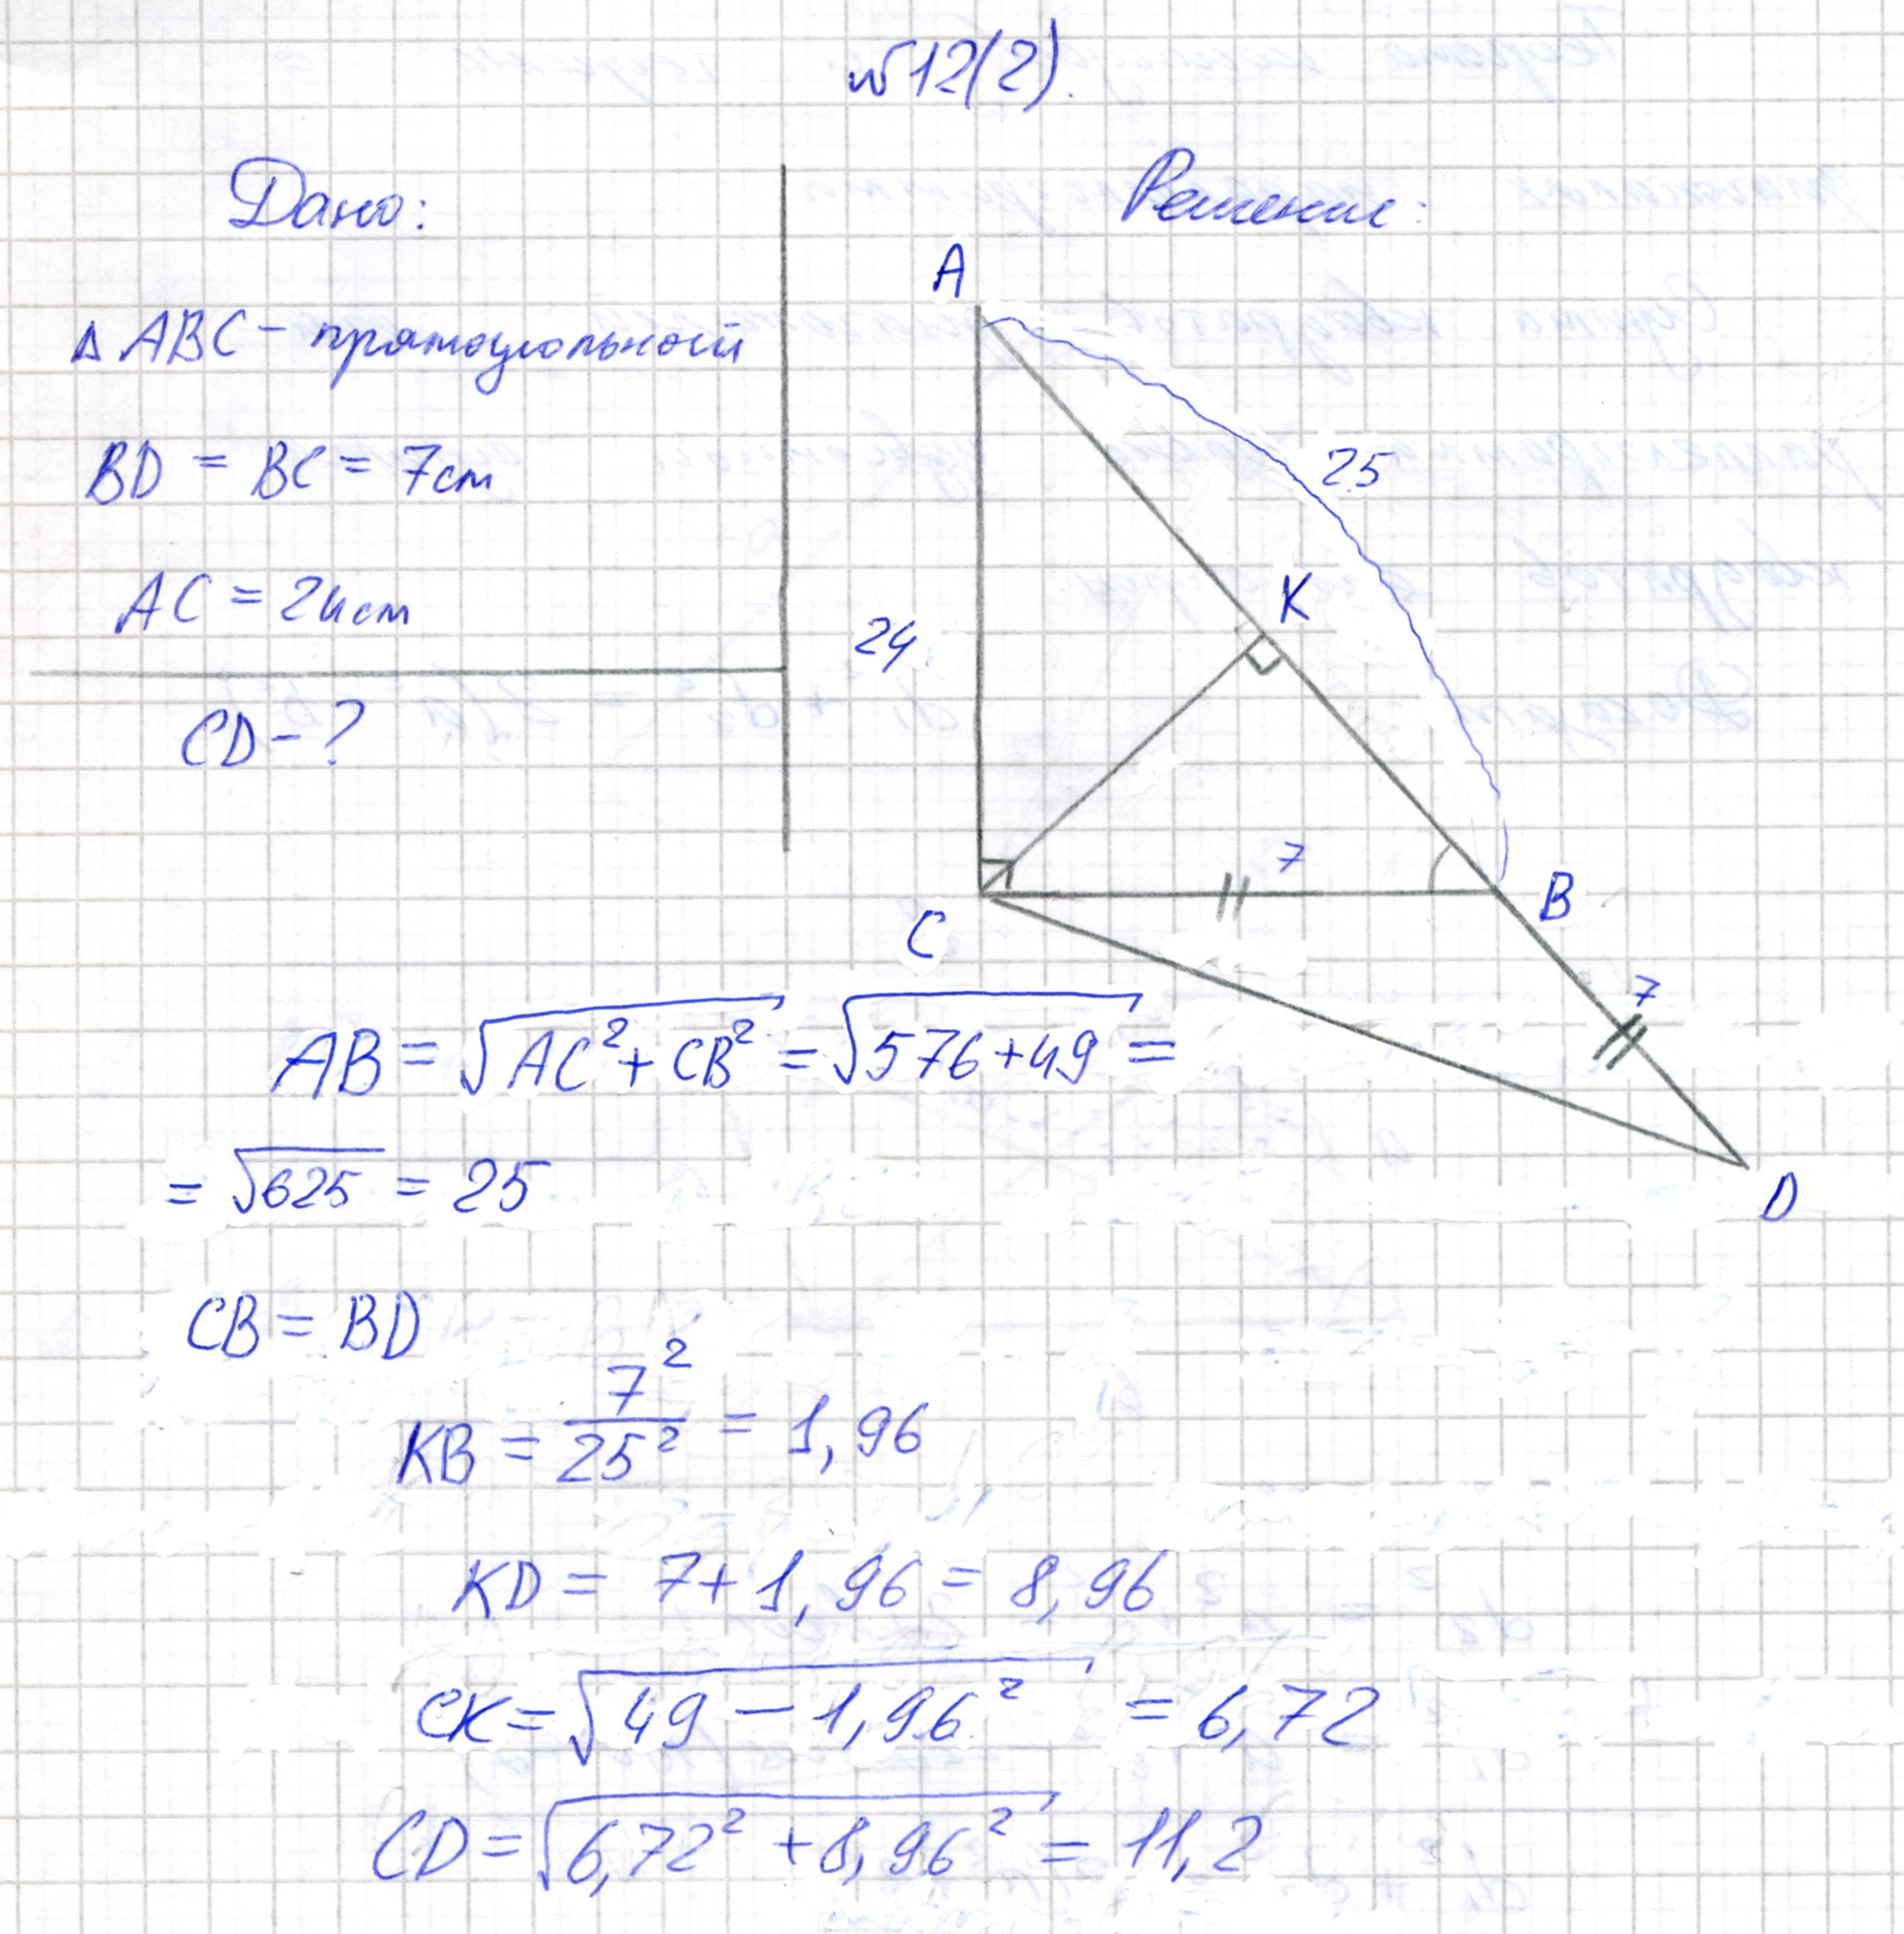 №12(2).
Дано:
△ABC – прямоугольный
BD = BC = 7см
AC = 24см
CD – ?
Решение:
A
25
K
24
7
B
C
7
D
AB = √(AC² + CB²) = √(576+49) =
= √625 = 25
CB = BD
KB = 7²/25² = 1,96
KD = 7+1,96 = 8,96
CK = √(49 – 1,96²) = 6,72
CD = √(6,72² + 8,96²) = 11,2